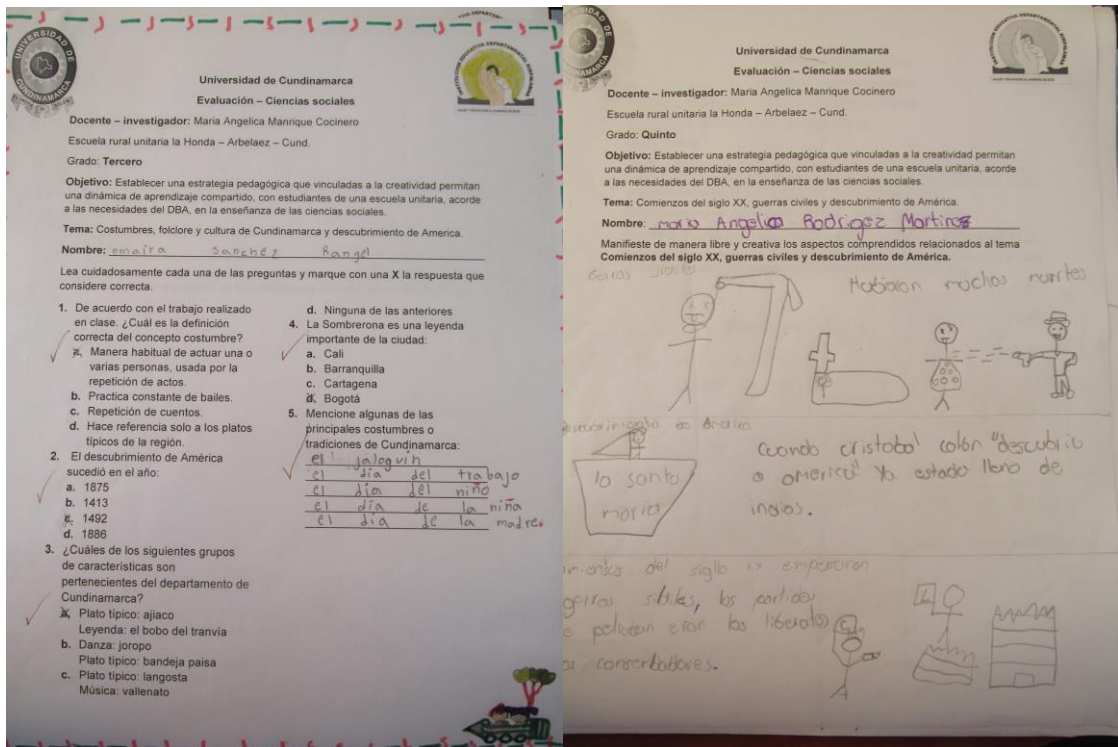 UNIVERSIDAD DE CUNDINAMARCA
Universidad de Cundinamarca
Evaluación – Ciencias sociales
Docente – investigador: Maria Angelica Manrique Cocinero
Escuela rural unitaria la Honda – Arbelaez – Cund.
Grado: Tercero
Objetivo: Establecer una estrategia pedagógica que vinculadas a la creatividad permitan
una dinámica de aprendizaje compartido, con estudiantes de una escuela unitaria, acorde
a las necesidades del DBA, en la enseñanza de las ciencias sociales.
Tema: Costumbres, folclore y cultura de Cundinamarca y descubrimiento de America.
Nombre: omaira Sanchez Rangel
Lea cuidadosamente cada una de las preguntas y marque con una X la respuesta que
considere correcta.
1. De acuerdo con el trabajo realizado
en clase. ¿Cuál es la definición
correcta del concepto costumbre?
a. Manera habitual de actuar una o
varias personas, usada por la
repetición de actos.
b. Practica constante de bailes.
c. Repetición de cuentos.
d. Hace referencia solo a los platos
típicos de la región.
2. El descubrimiento de América
sucedió en el año:
a. 1875
b. 1413
c. 1492
d. 1886
3. ¿Cuáles de los siguientes grupos
de características son
pertenecientes del departamento de
Cundinamarca?
a. Plato típico: ajiaco
Leyenda: el bobo del tranvía
b. Danza: joropo
Plato típico: bandeja paisa
c. Plato típico: langosta
Música: vallenato
d. Ninguna de las anteriores
4. La Sombrerona es una leyenda
importante de la ciudad:
a. Cali
b. Barranquilla
c. Cartagena
d. Bogotá
5. Mencione algunas de las
principales costumbres o
tradiciones de Cundinamarca:
el jaloguin
el día del trabajo
el día del niño
el día de la niña
el día de la madre.
Universidad de Cundinamarca
Evaluación – Ciencias sociales
Docente – investigador: Maria Angelica Manrique Cocinero
Escuela rural unitaria la Honda – Arbelaez – Cund.
Grado: Quinto
Objetivo: Establecer una estrategia pedagógica que vinculadas a la creatividad permitan
una dinámica de aprendizaje compartido, con estudiantes de una escuela unitaria, acorde
a las necesidades del DBA, en la enseñanza de las ciencias sociales.
Tema: Comienzos del siglo XX, guerras civiles y descubrimiento de América.
Nombre: maria Angelica Rodrigez Martines
Manifieste de manera libre y creativa los aspectos comprendidos relacionados al tema
Comienzos del siglo XX, guerras civiles y descubrimiento de América.
Habiaron muchos muertes
de America
la santa
maria
Cuando cristobal colón "descubrio
a america" ya estado lleno de
indios.
del siglo xx empesaron
sibiles, los partidos
eran los liberales
conserbadores.
L
C